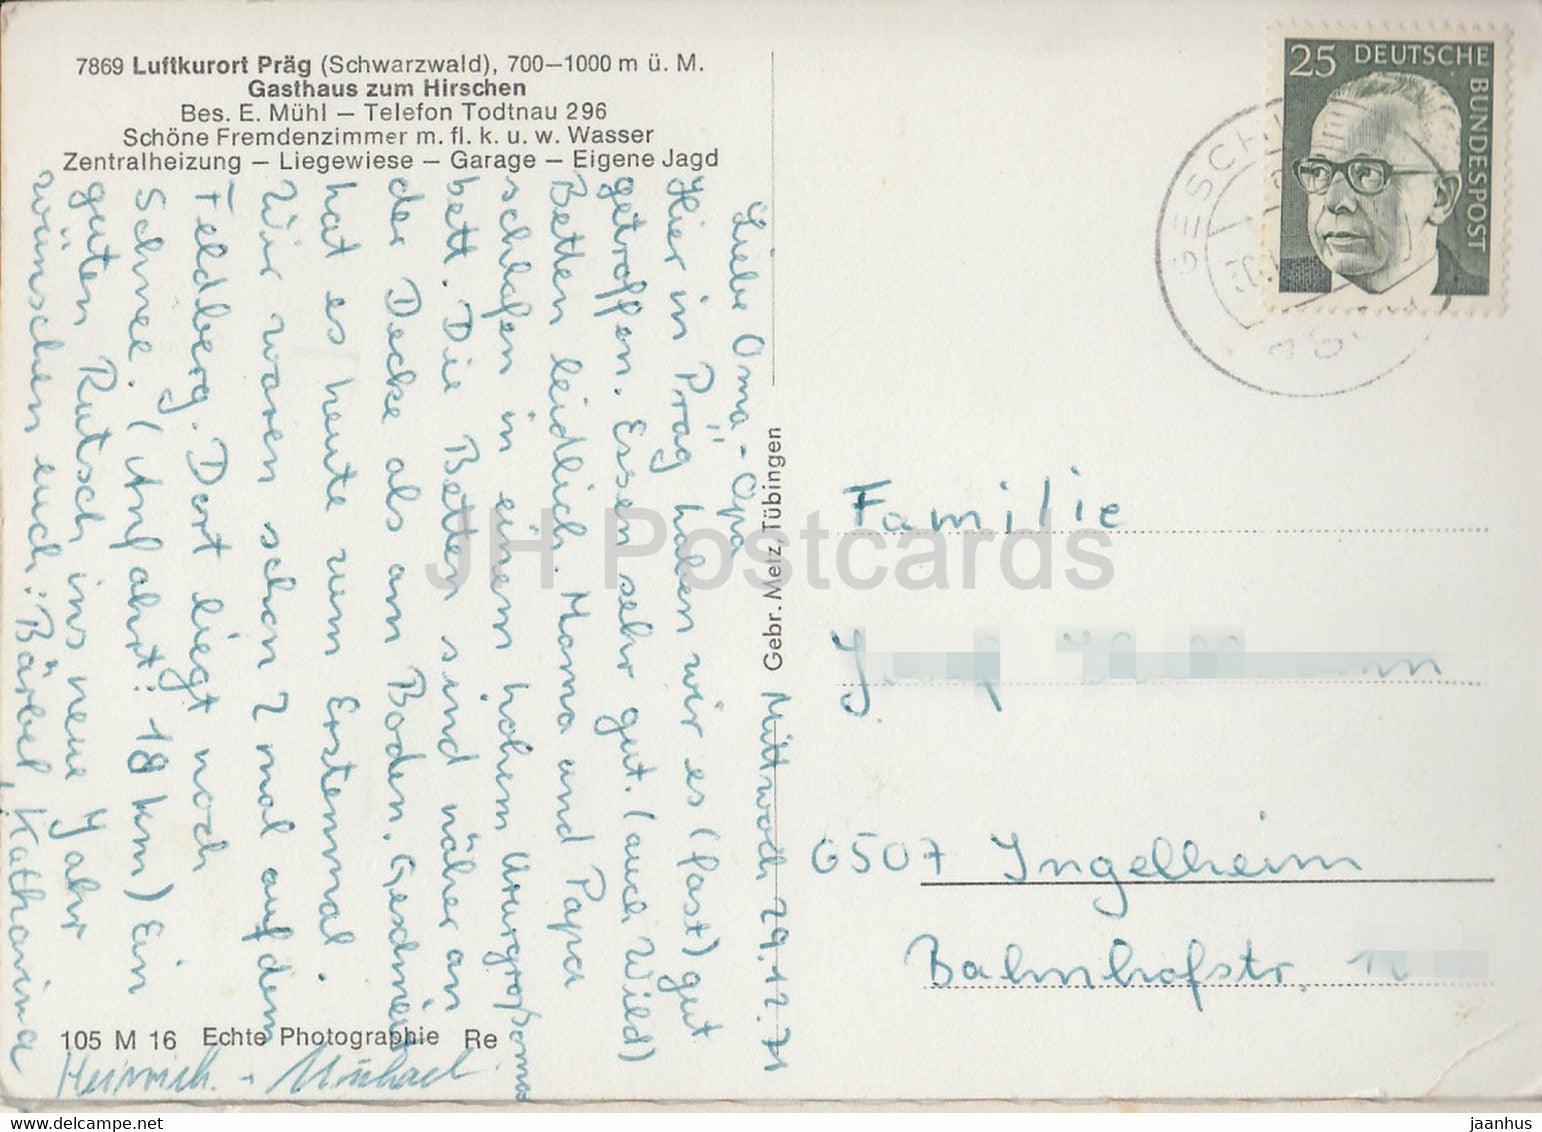 7869 Luftkurort Präg (Schwarzwald), 700–1000 m ü. M.
Gasthaus zum Hirschen
Bes. E. Mühl – Telefon Todtnau 296
Schöne Fremdenzimmer m. fl. k. u. w. Wasser
Zentralheizung – Liegewiese – Garage – Eigene Jagd
Mittwoch 29.12.71
Liebe Oma - Opa
Hier in Präg haben wir es (fast) gut
getroffen. Essen sehr gut. (auch Wild)
Betten leidlich. Mama und Papa
schlafen in einem hohem Ururgroßomas
bett. Die Betten sind näher an
der Decke als am Boden. Geschneit
hat es heute zum Erstenmal.
Wir waren schon 2 mal auf dem
Feldberg. Dort liegt noch
Schnee. (Anfahrt: 18 km) Ein
guten Rutsch ins neue Jahr
wünschen euch: Bärbel, Katharina
Heinrich. - Michael.
Gebr. Metz, Tübingen
105 M 16 Echte Photographie Re
25 DEUTSCHE
BUNDESPOST
Familie
6507 Ingelheim
Bahnhofstr.
JH Postcards
delcampe.net
jaanhus